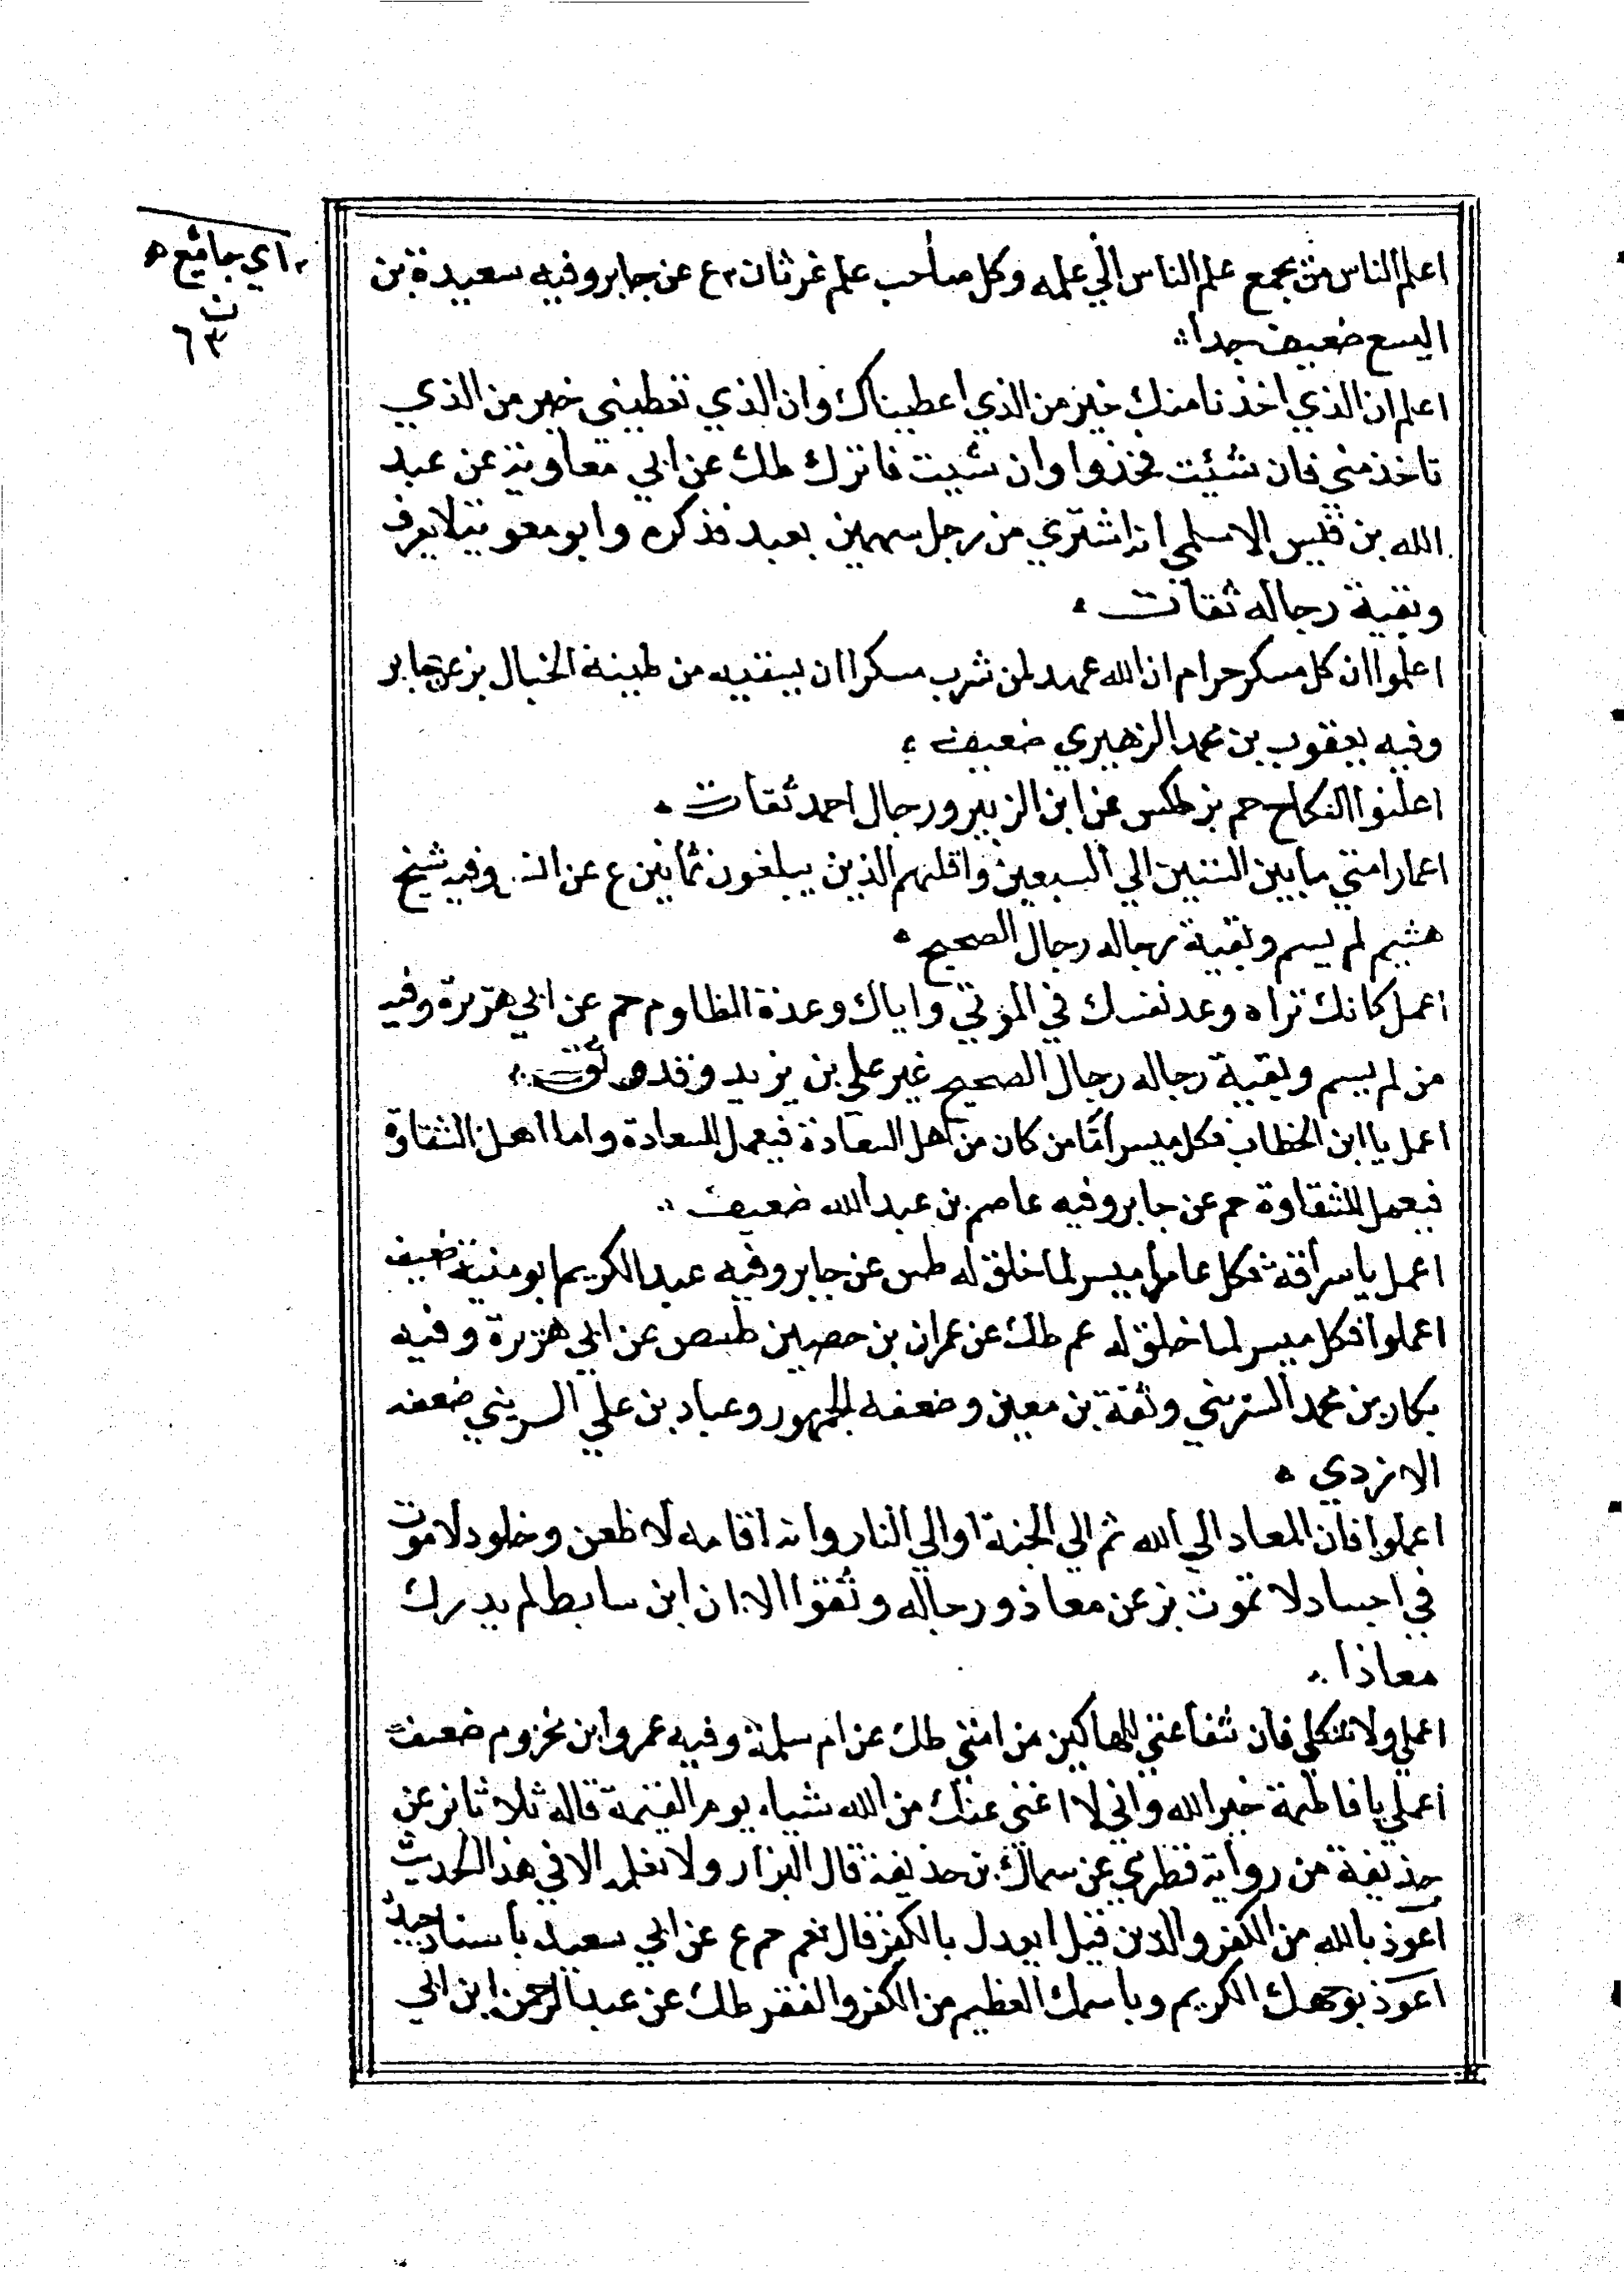 اعلم الناس من يجمع علم الناس الي علمه وكل صاحب علم غرثان ع عن جابر وفيه سعيدة بن
اليسع ضعيف جدا
اعلم ان الذي اخذنا منك خير من الذي اعطيناك وان الذي تعطيني خير من الذي
تاخذ مني فان شئت فخذوا وان شيت فاترك طك عن ابي معاوية عن عبد
الله بن قيس الاسلمي انه اشتري من رجل سهمين بعبد فذكره وابو معوية لا يعرف
وبقية رجاله ثقات
اعلموا ان كل مسكر حرام ان الله عهد لمن شرب مسكرا ان يسقيه من طينة الخبال بز عن جابر
وفيه يعقوب بن محمد الزهيري ضعيف
اعلنوا النكاح حم بز طكس عن ابن الزبير ورجال احمد ثقات
اعمار امتي ما بين الستين الي السبعين واقلهم الذين يبلغون ثمانين ع عن انس وفيه شيخ
هشيم لم يسم وبقية رجاله رجال الصحيح
اعمل كانك تراه وعد نفسك في الموتي واياك وعدة المظلوم حم عن ابي هريرة وفيه
من لم يسم وبقية رجاله رجال الصحيح غير علي بن يزيد وقد وثق
اعمل يا ابن الخطاب فكل ميسر أمّا من كان من اهل السعادة فيعمل للسعادة واما اهل الشقاوة
فيعمل للشقاوة حم عن جابر وفيه عاصم بن عبد الله ضعيف
اعمل يا سراقة فكل عامل ميسر لما خلق له طس عن جابر وفيه عبد الكريم ابو منية ضعيف
اعملوا فكل ميسر لما خلق له عم طك عن عمران بن حصين طسص عن ابي هريرة وفيه
بكار بن محمد السريني وثقة بن معين وضعفه الجمهور وعباد بن علي السريني ضعفه
الازدي
اعملوا فان المعاد الي الله ثم الي الجنة او الي النار وانه اقامه لا ظعن وخلود لا موت
في اجساد لا تموت بز عن معاذ ورجاله وثقوا الا ان ابن سابط لم يدرك
معاذا
اعملي ولا تتكلي فان شفاعتي للهاكين من امتي طك عن ام سلمة وفيه عمرو ابن مخزوم ضعيف
اعملي يا فاطمة خير الله واني لا اغني عنك من الله شياء يوم القيمة قاله ثلاثا بز عن
حذيفة من رواية قطري عن سماك بن حذيفة قال البزار ولا نعلمه الا في هذا الحديث
اعوذ بالله من الكفر والدين قيل ايعدل بالكفر قال نعم حم ع عن ابي سعيد باسناد جيد
اعوذ بوجهك الكريم وباسمك العظيم من الكفر والفقر طك عن عبد الرحمن ابن ابي
اي جايع
ن
٦٣